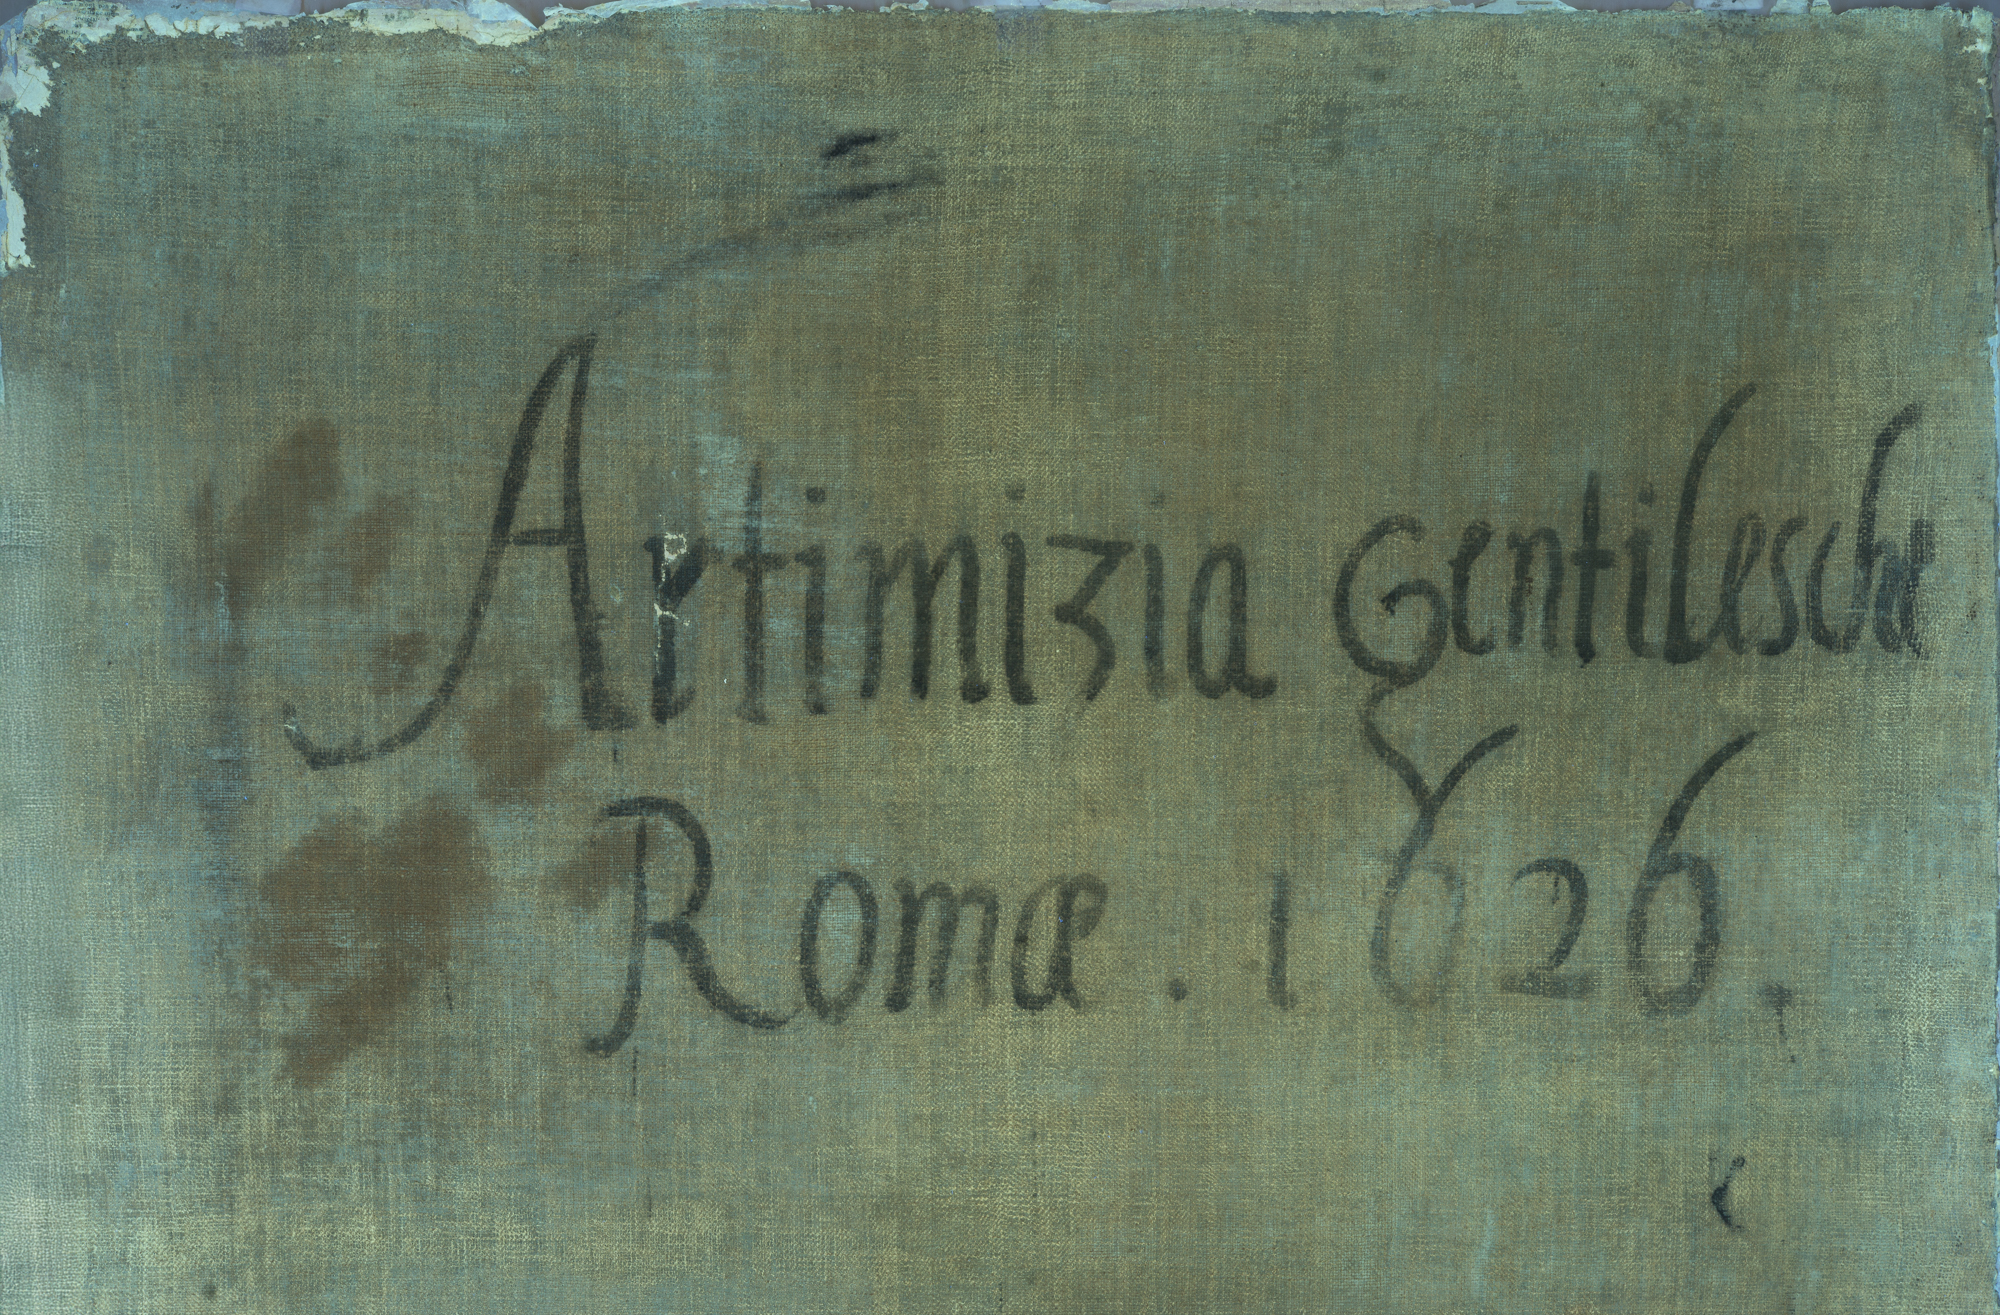 Artimizia Gentilesche
Romæ . 1626.